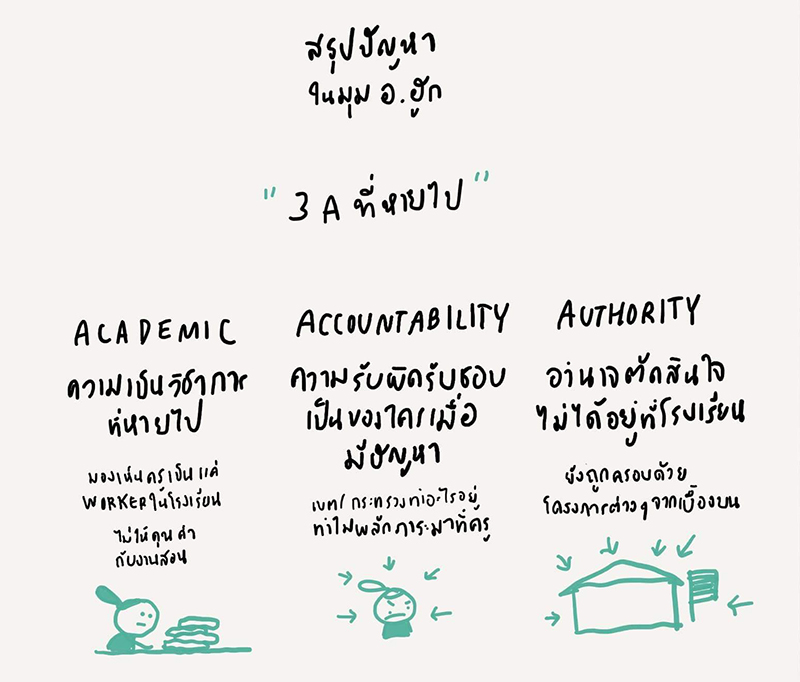 สรุปปัญหา
ในมุม อ.ฮูก
"3 A ที่หายไป"
ACADEMIC
ความเป็นวิชาการ
ที่หายไป
มองเห็นครูเป็นแค่
WORKER ในโรงเรียน
ไม่ให้คุณค่า
กับงานสอน
ACCOUNTABILITY
ความรับผิดรับชอบ
เป็นของใครเมื่อ
มีปัญหา
เขต/กระทรวงทำอะไรอยู่
ทำไมผลักภาระมาที่ครู
AUTHORITY
อำนาจตัดสินใจ
ไม่ได้อยู่ที่โรงเรียน
ยังถูกครอบด้วย
โครงการต่างๆ จากเบื้องบน